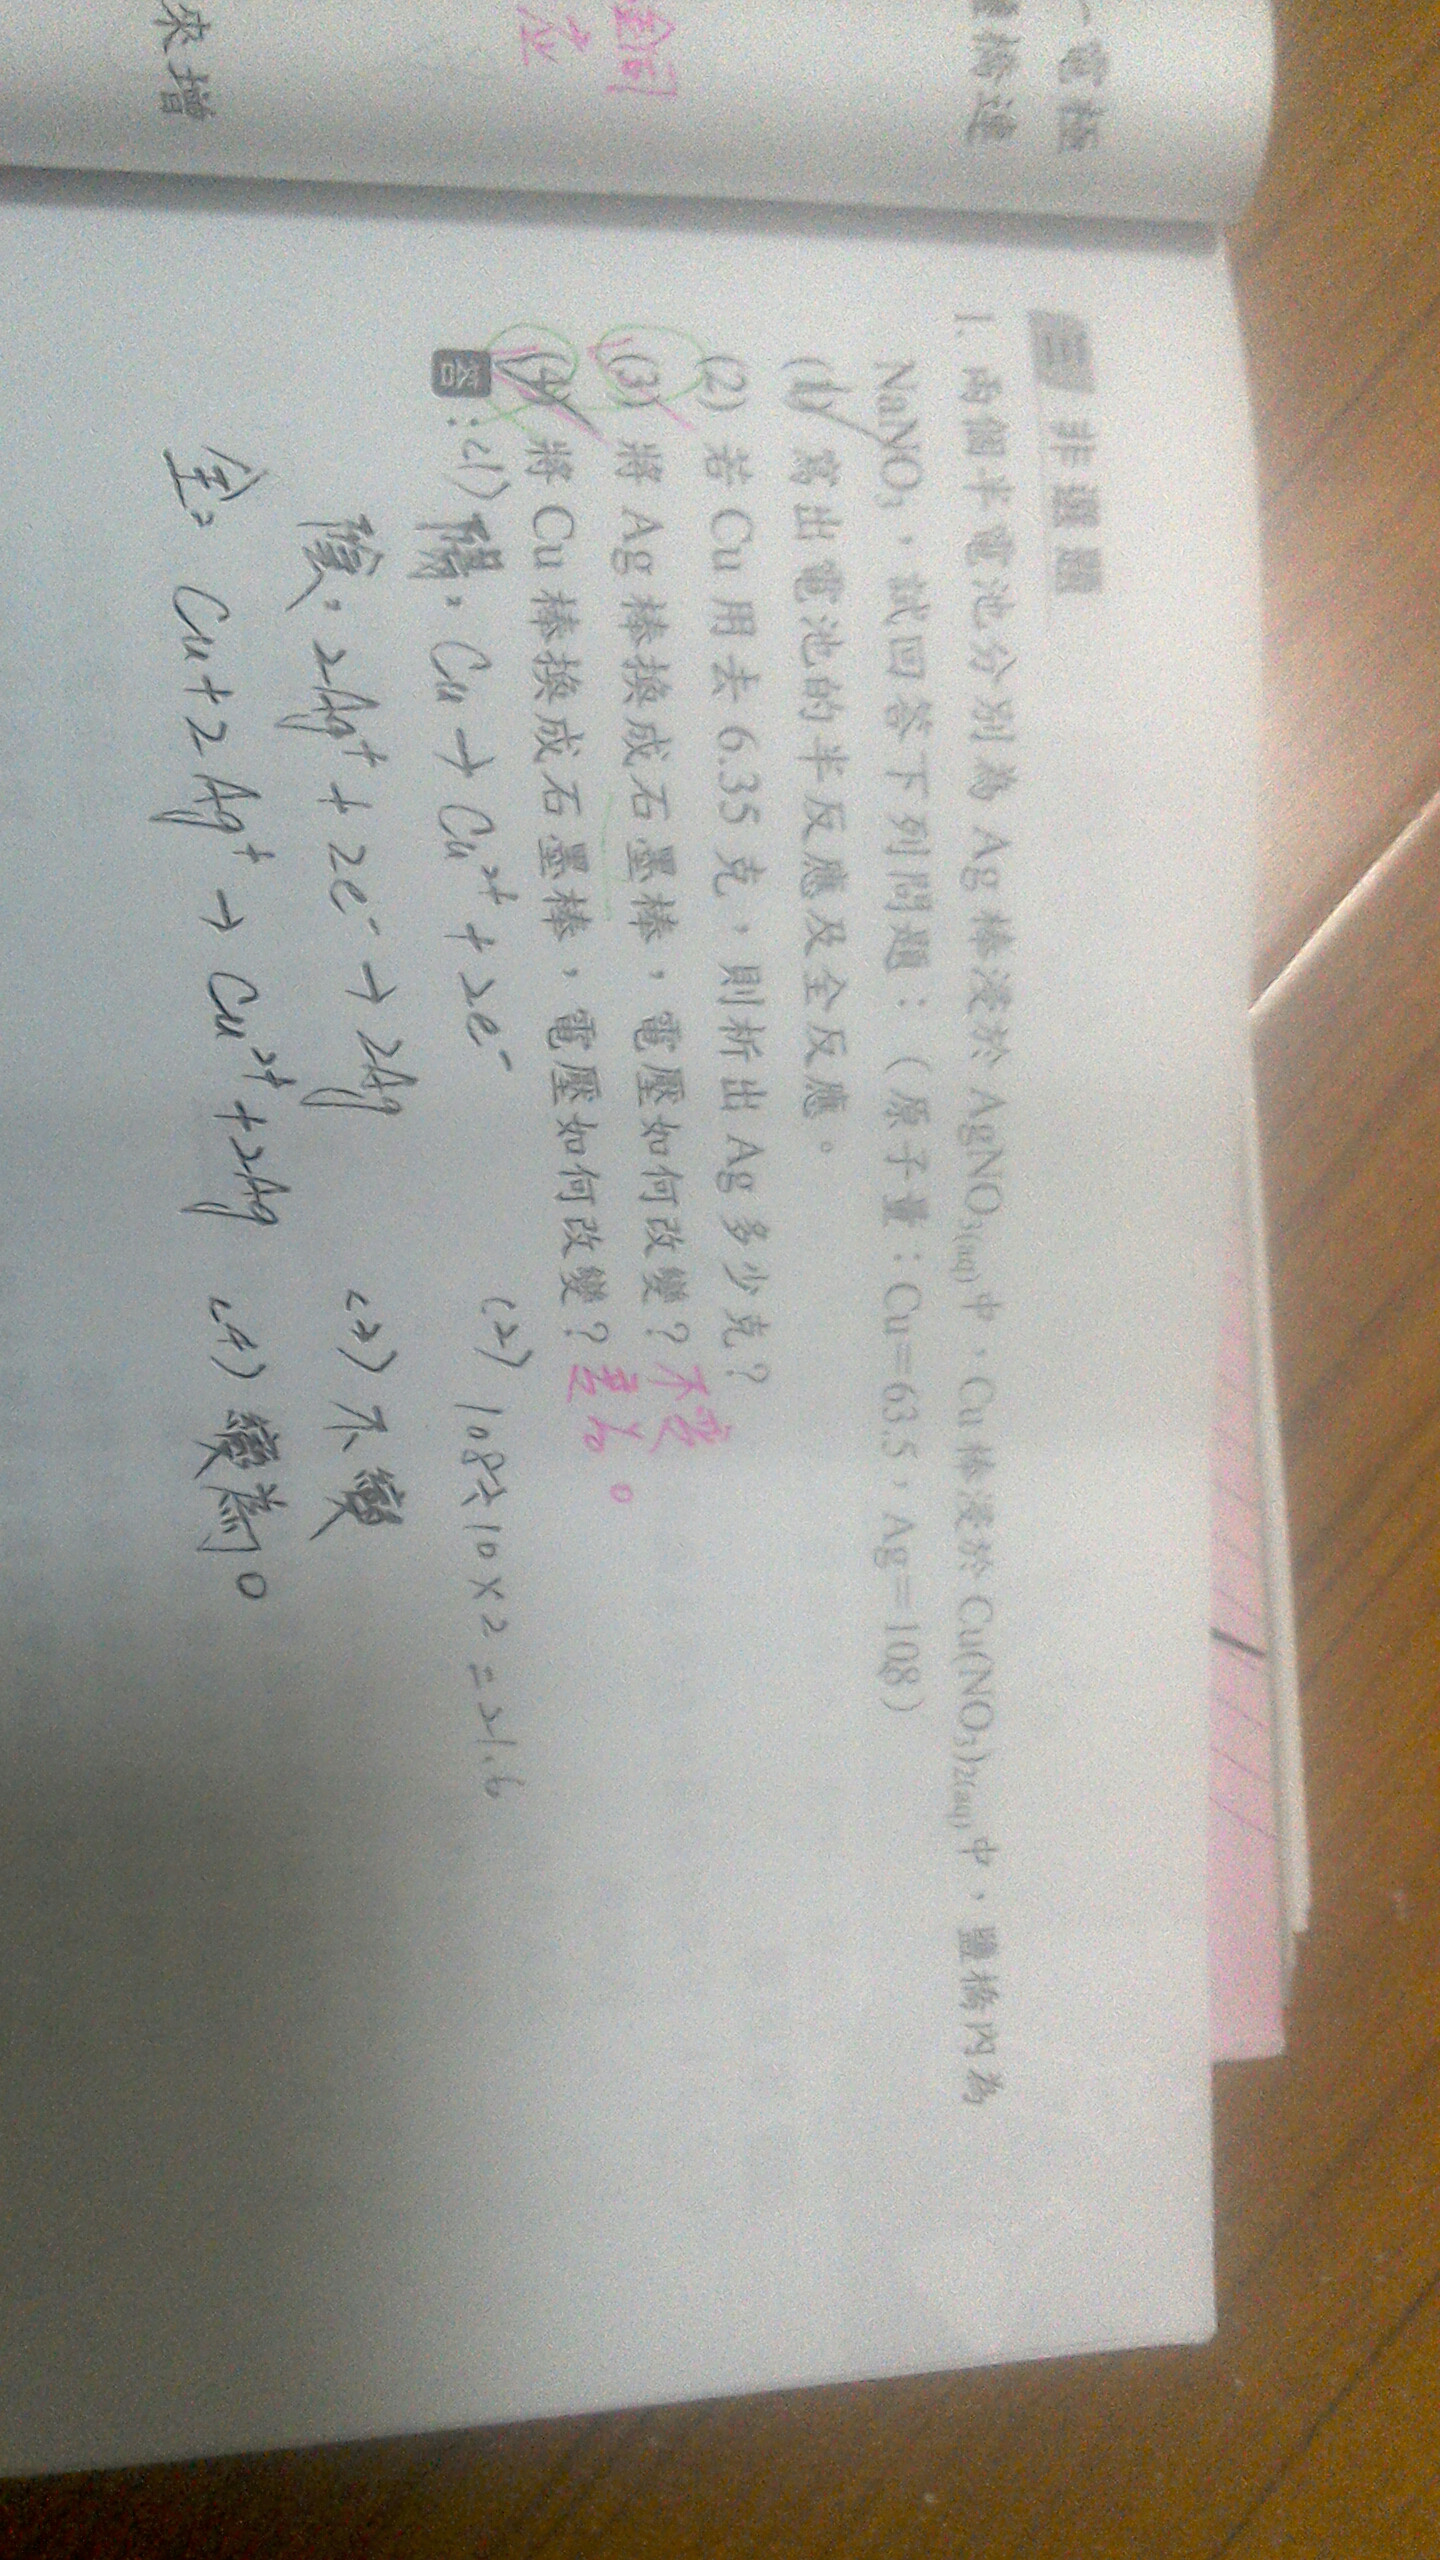 一電極
橋連
銅
來增
三 非選題
1. 兩個半電池分別為 Ag 棒浸於 AgNO₃(aq)中,Cu 棒浸於 Cu(NO₃)₂(aq)中,鹽橋內為
NaNO₃,試回答下列問題:(原子量:Cu=63.5,Ag=108)
(1) 寫出電池的半反應及全反應。
(2) 若 Cu 用去 6.35 克,則析出 Ag 多少克?
(3) 將 Ag 棒換成石墨棒,電壓如何改變? 不變
(4) 將 Cu 棒換成石墨棒,電壓如何改變? 為0
答:(1) 陽: Cu → Cu²⁺ + 2e⁻
(2) 108÷10×2=21.6
陰: 2Ag⁺ + 2e⁻ → 2Ag
(3) 不變
全: Cu + 2Ag⁺ → Cu²⁺ + 2Ag
(4) 變為0